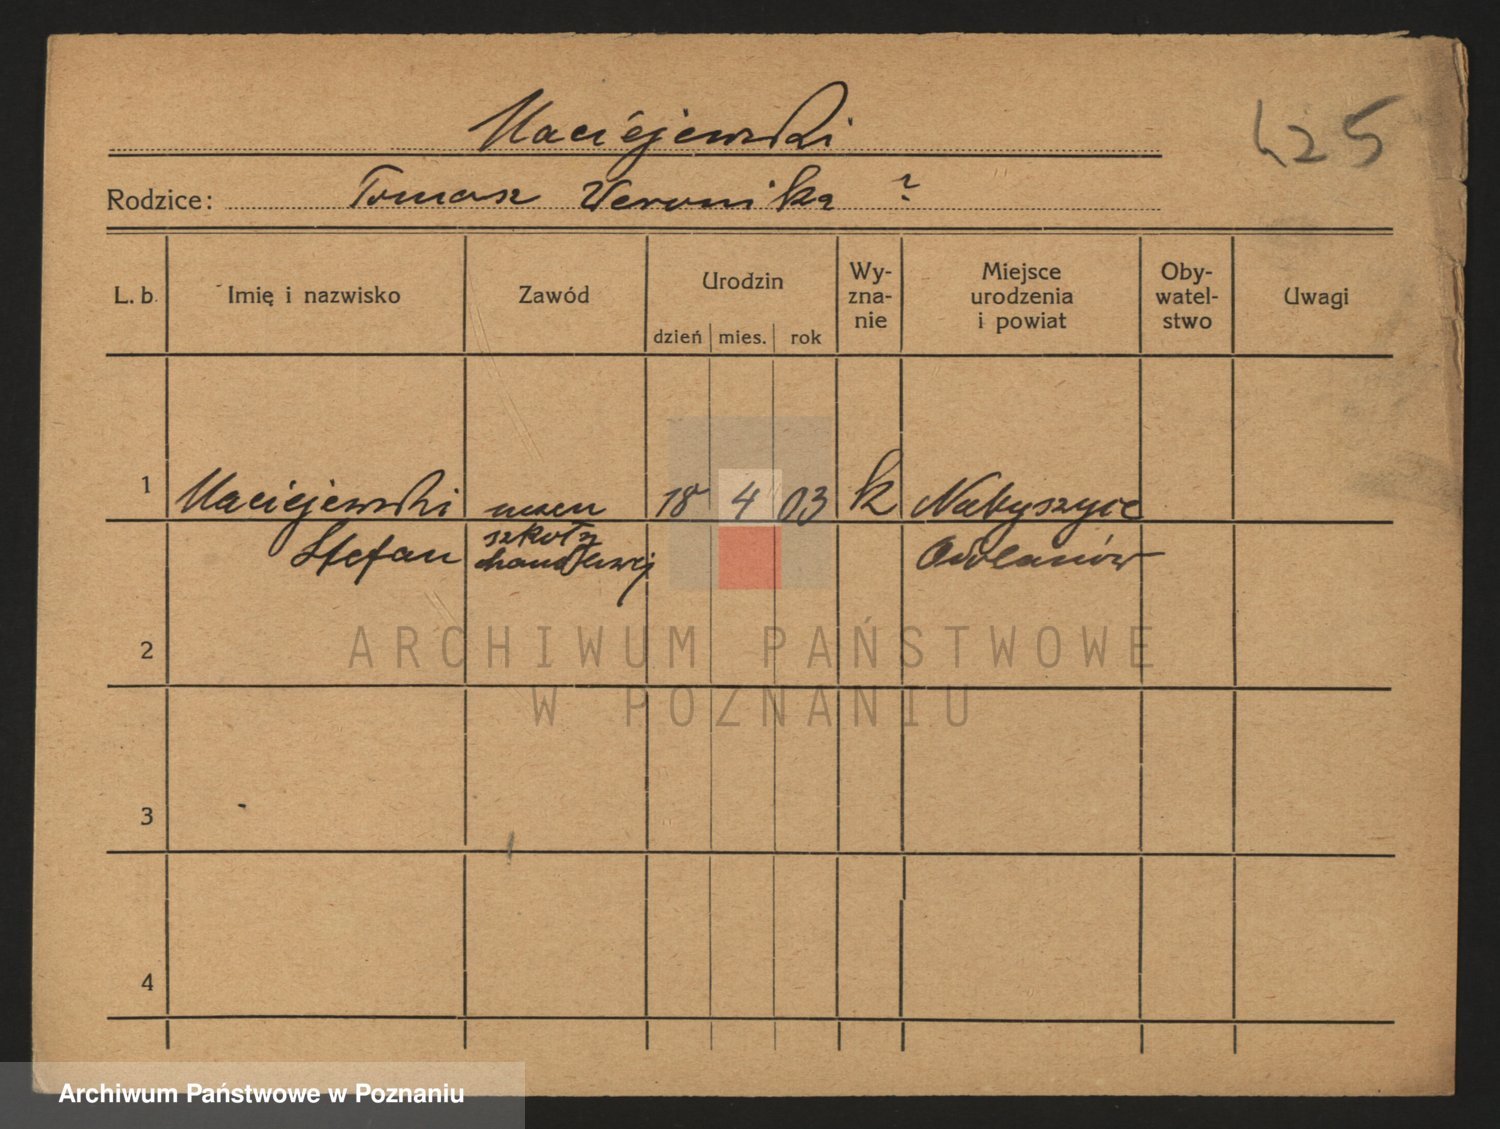 Maciejewski
425
Rodzice: Tomasz Veronika ?
L. b. Imię i nazwisko Zawód Urodzin Wy-zna-nie Miejsce urodzenia i powiat Oby-watel-stwo Uwagi
dzień mies. rok
1 Maciejewski uczeń 18 4 03 k Nabyszyce
Stefan szkoły handlowej Odolanów
2
ARCHIWUM PAŃSTWOWE
W POZNANIU
3
4
Archiwum Państwowe w Poznaniu